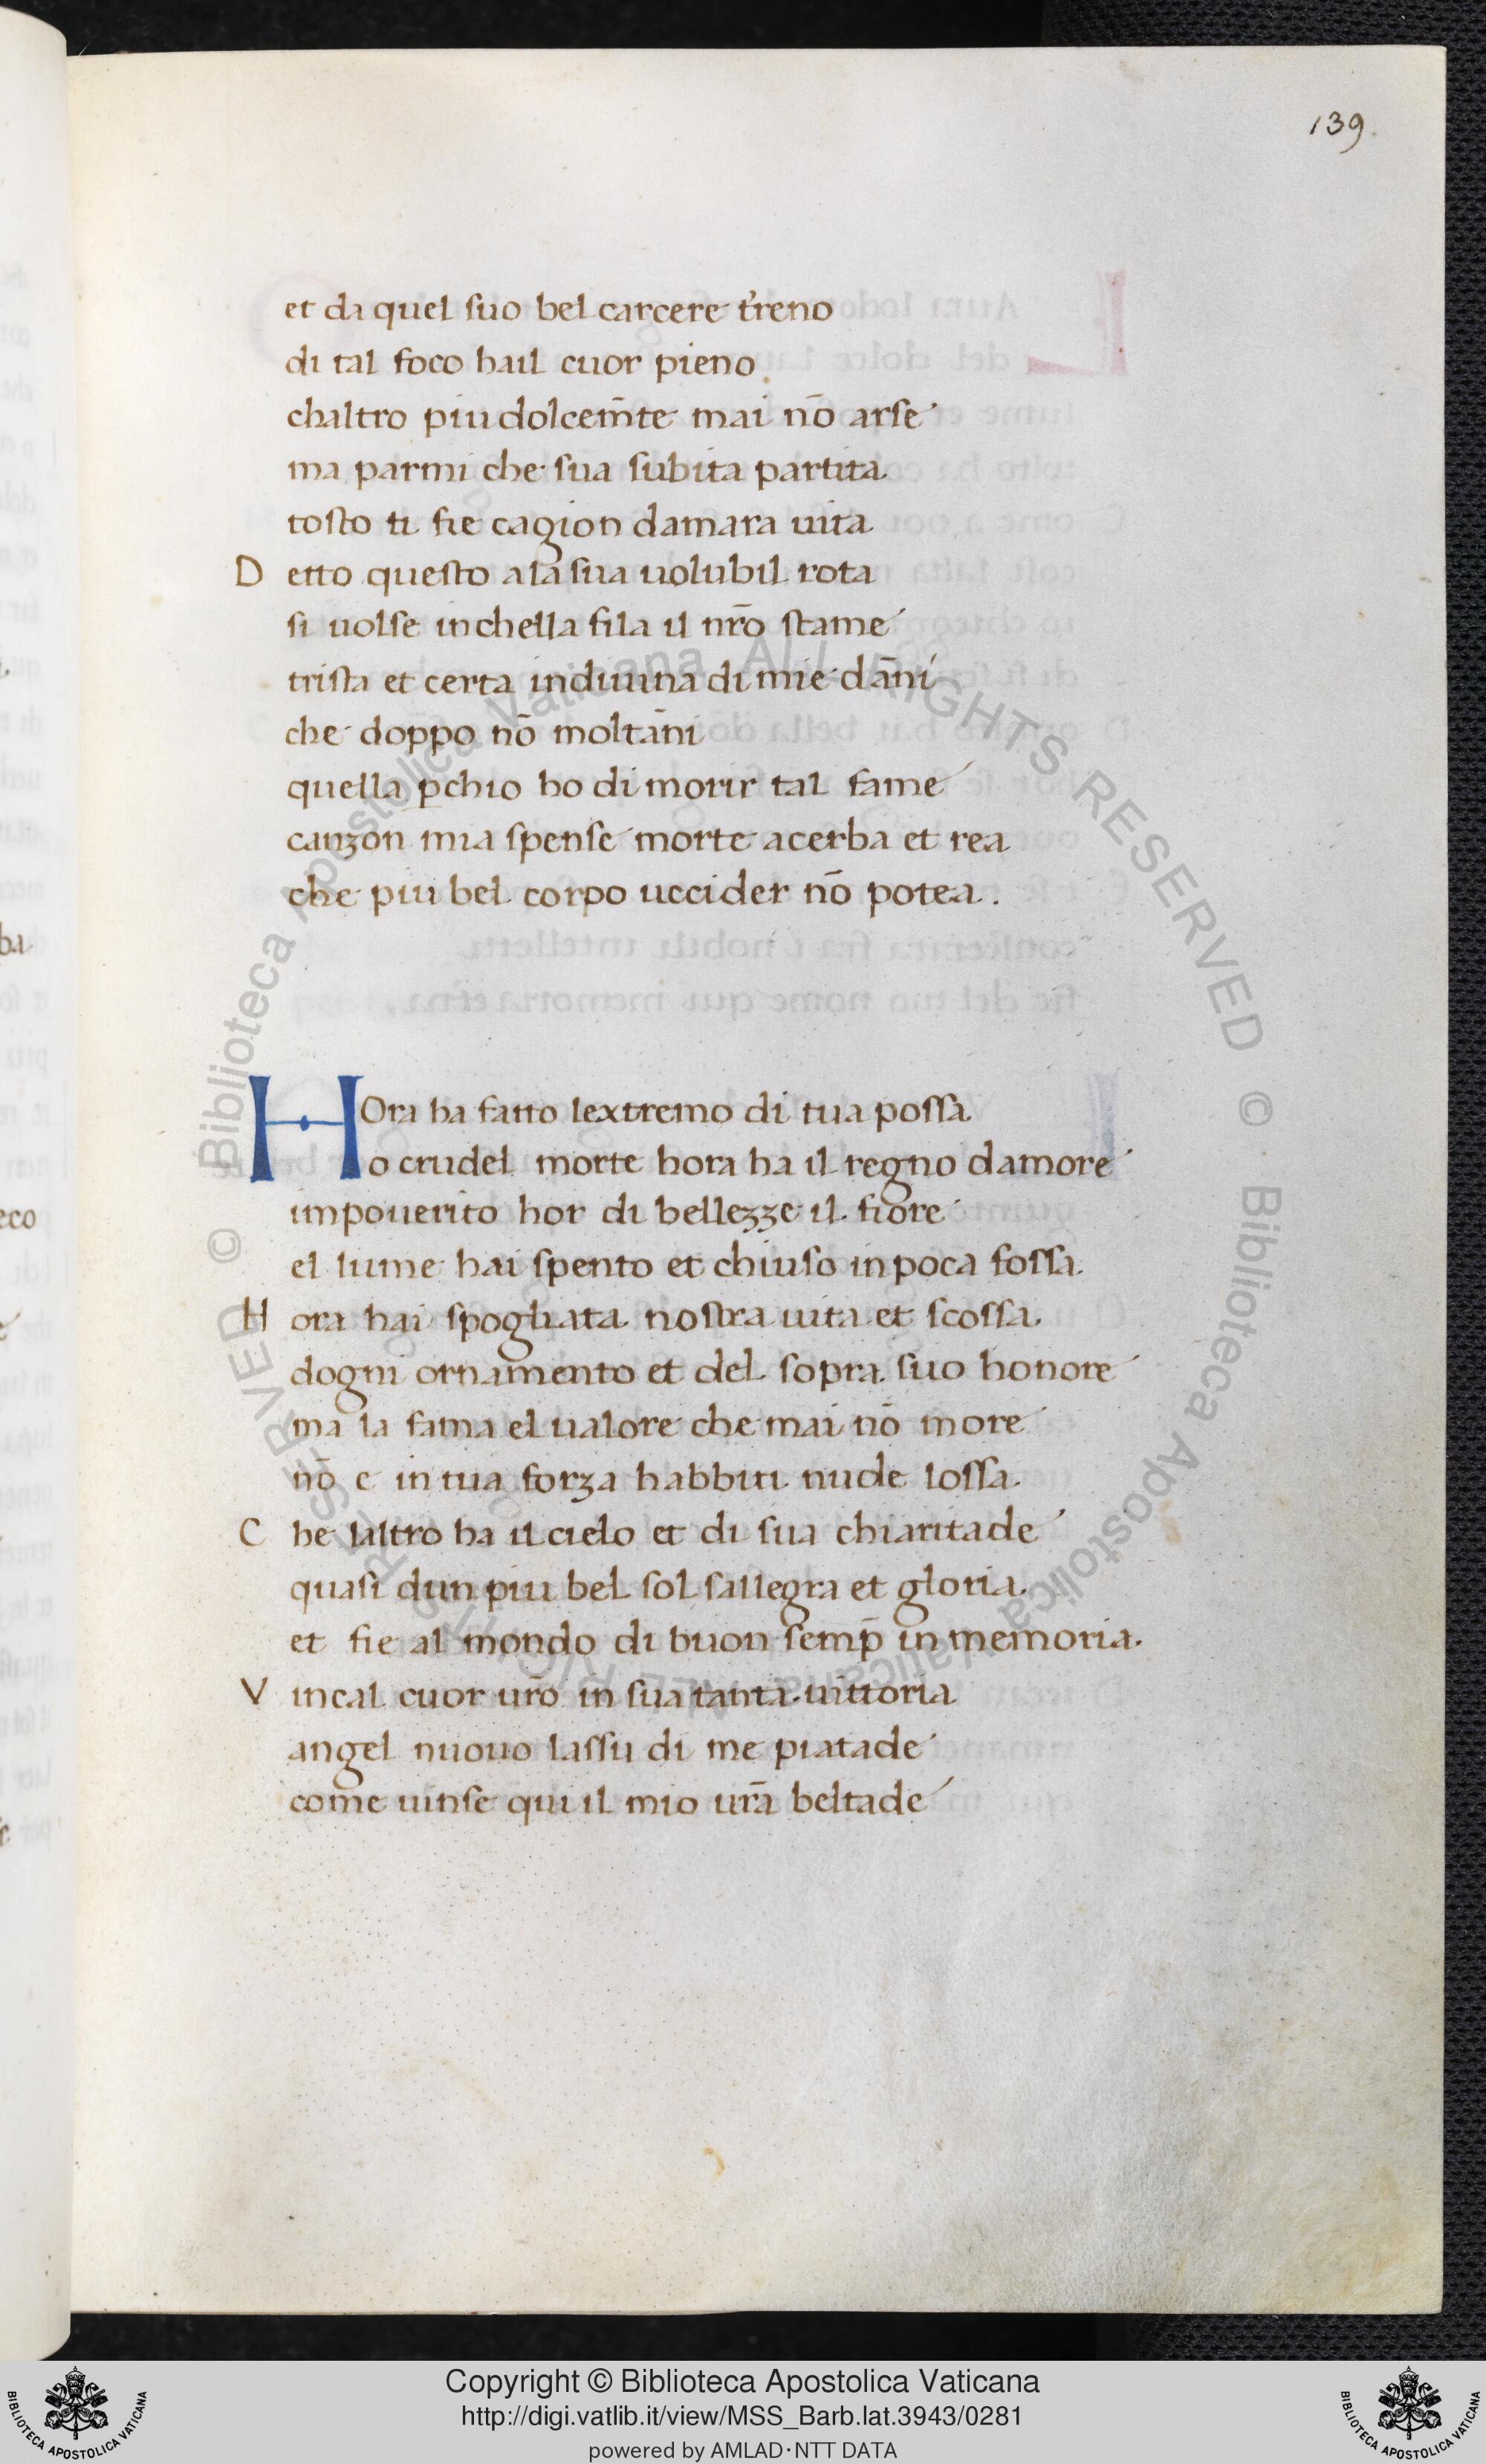 139.
et da quel suo bel carcere t'reno
di tal foco hail cuor pieno
chaltro piu dolcem̄te mai nō arse
ma parmi che sua subita partita
tosto ti fie cagion damara uita
D etto questo a la sua uolubil rota
si uolse in chella fila il nr̄o stame
trista et certa indiuina di mie dāni
che doppo nō moltāni
quella ꝑchio ho di morir tal fame
canzon mia spense morte acerba et rea
che piu bel corpo uccider nō potea.
HOra ha fatto lextremo di tua possa
o crudel morte hora ha il regno damore
impouerito hor di bellezze il fiore
el lume hai spento et chiuso in poca fossa
H ora hai spogliata nostra uita et scossa
dogni ornamento et del sopra suo honore
ma la fama el ualore che mai nō more
nō e in tua forza habbiti nude lossa
C he laltro ha il cielo et di sua chiaritade
quasi dun piu bel sol sallegra et gloria
et fie al mondo di buon semp̄ in memoria.
V incal cuor ur̄o in sua tanta uittoria
angel nuouo lassu di me piatade
come uinse qui il mio ur̄a beltade
© Biblioteca Apostolica Vaticana ALL RIGHTS RESERVED © Biblioteca Apostolica Vaticana ALL RIGHTS RESERVED
Copyright © Biblioteca Apostolica Vaticana
http://digi.vatlib.it/view/MSS_Barb.lat.3943/0281
powered by AMLAD·NTT DATA
BIBLIOTECA APOSTOLICA VATICANA
BIBLIOTECA APOSTOLICA VATICANA